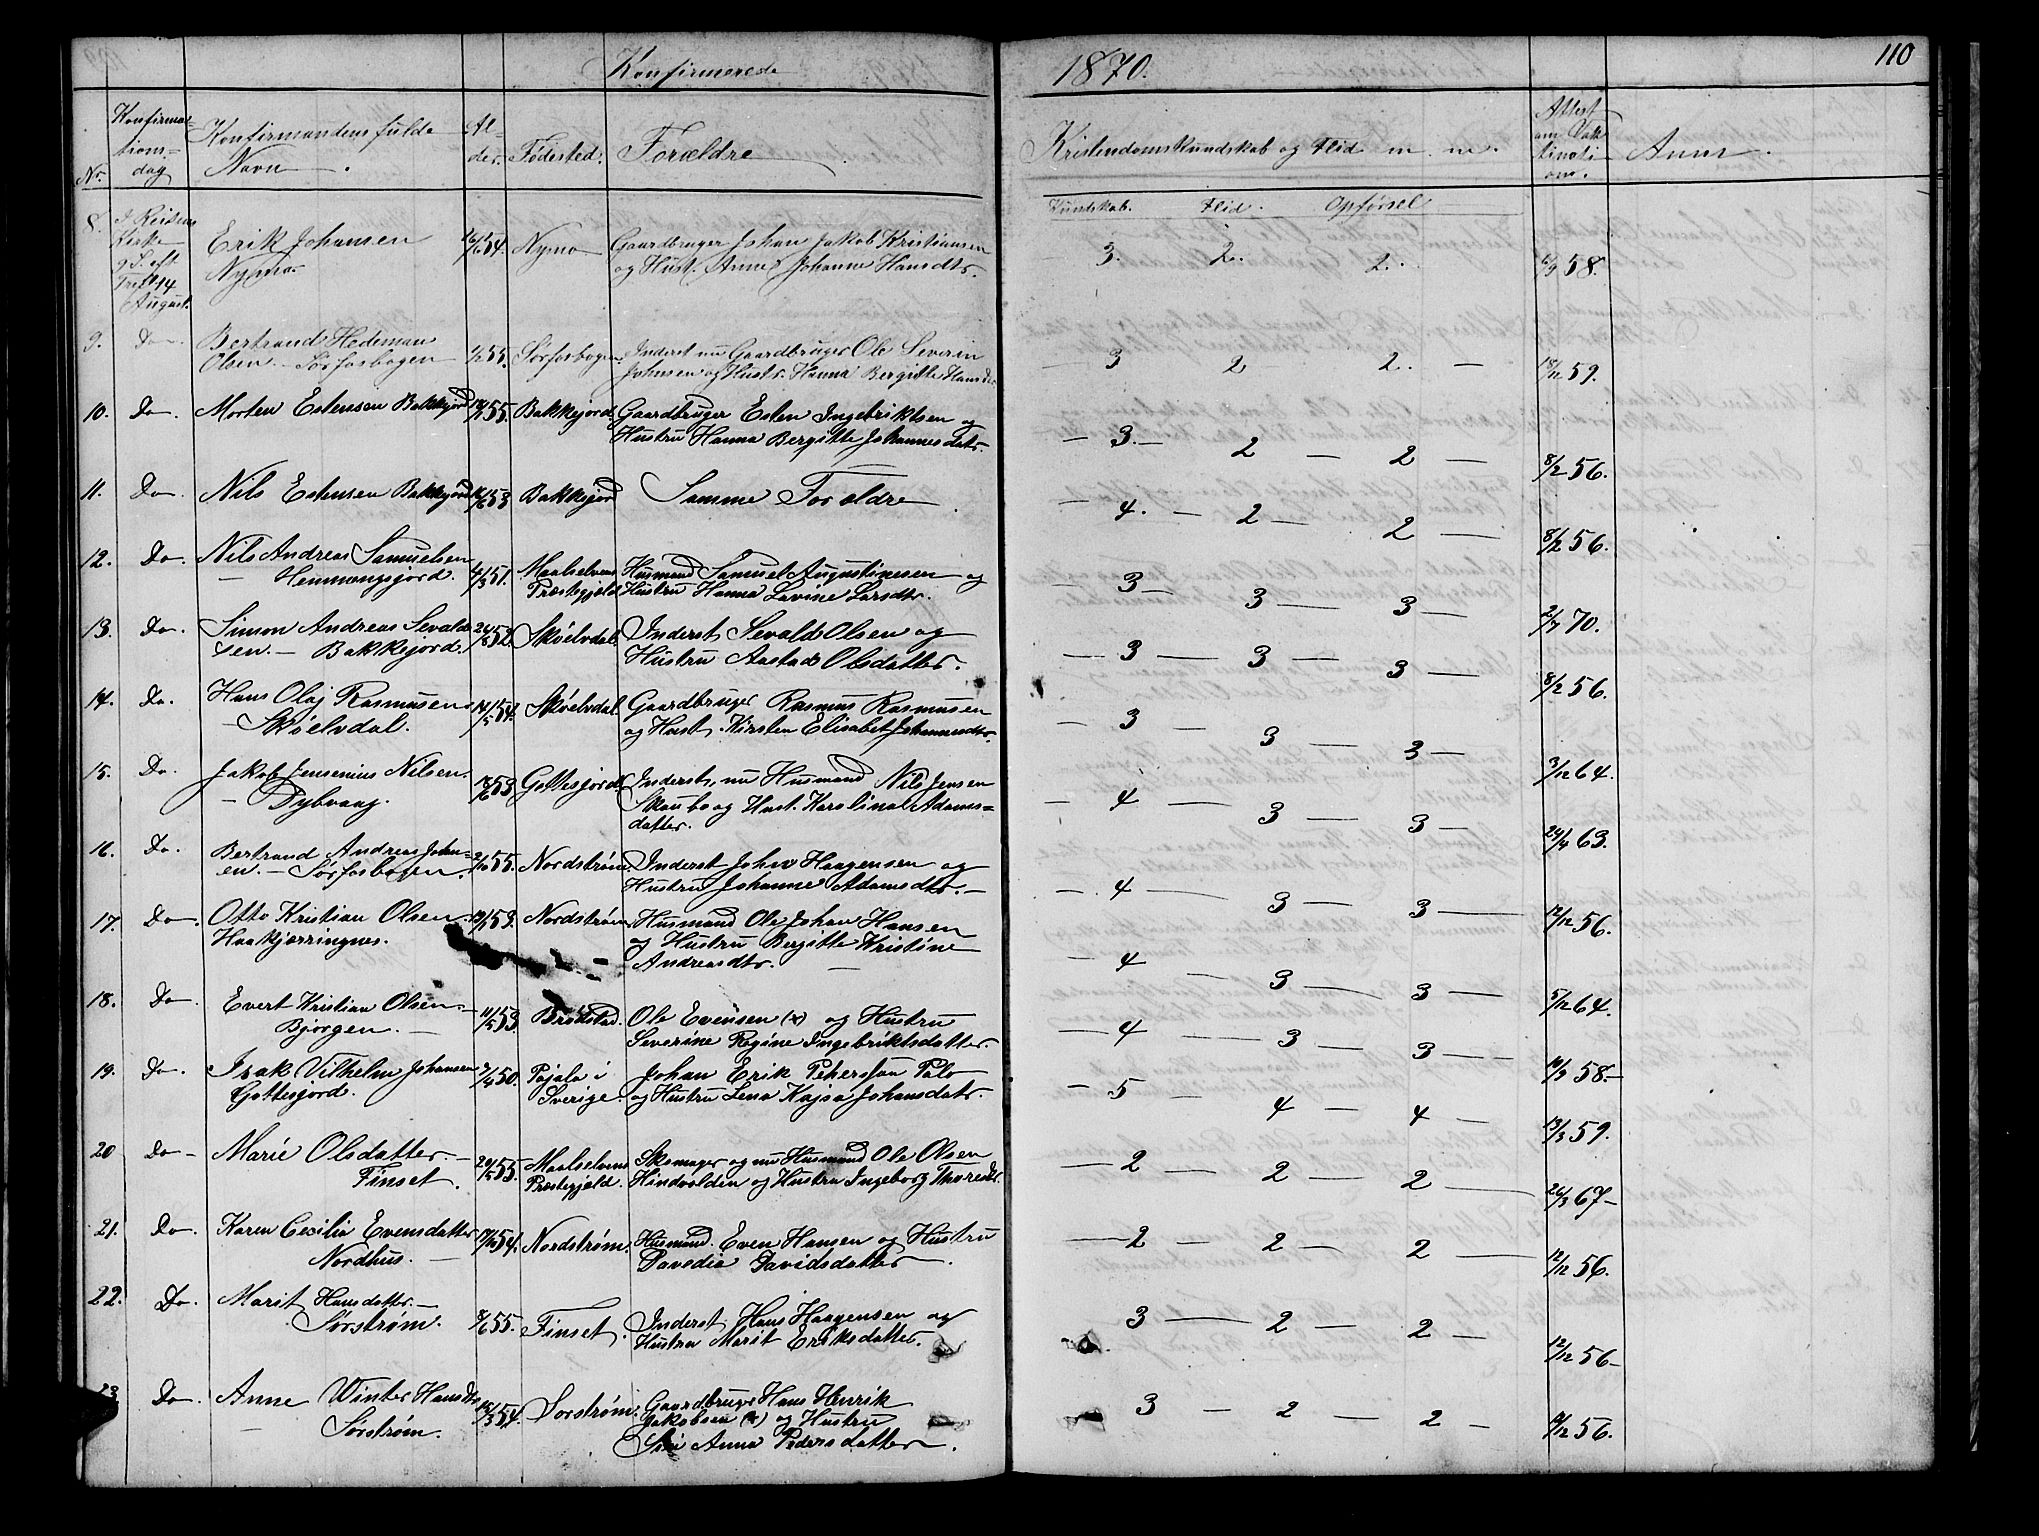 Konfirmerede
1870.
110
Nr.
Konfirma-
tions-
dag
Konfirmandens fulde
Navn
Al-
der.
Fødested.
Forældre
Kristendomskundskab og Flid m. m.
Attest
om Vak
tinati
on.
Anm.
Kundskab. Flid. Opførsel
8. I Reisens
Kirke
9 S. eft
Tref. 14
August.
Erik Johansen
Nymo
16/6 54. Nymo
Gaardbruger Johan Jakob Kristiansen
og Hust. Anne Johanne Hansdtr.
3. 2. 2. 6/9 58.
9. Do Bertrand Hedeman
Olsen. - Sørfosbogen
1/2 55. Sørfosbogen.
Inderst nu Gaardbruger Ole Severin
Johnsen og Hustr. Hanna Bergitte Hansdtr
3 2 2. - 18/12 59.
10. Do. Morten Estensen Bakkejord 55. Bakkejord
Gaardbruger Esten Ingebriktsen og
Hustru Hanna Bergitte Johannesdatr.
- 3 - 2 - 2 - 8/2 56.
11. Do Nils Estensen Bakkejord 53 Bakkejord Samme Forældre
- 4. - 2 - 2 - 8/2 56.
12. Do. Nils Andreas Samuelsen
- Hemmongsjord.
4/3 51. Maalselvens
Præstegjæld
Husmand Samuel Augustinusen og
Hustru Hanna Lavine Larsdtr.
- 3 - 3 - 3 - 2/7 70.
13. Do. Simon Andreas Sevald
sen. - Bakkejord.
24/8 52. Skøelvdal
Inderst Sevald Olsen og
Hustru Aastad Olsdatter.
- 3 - 3 - 3 - 8/2 56.
14. Do. Hans Olaj Rasmusen
- Skøelvdal.
14/5 54. Skøelvdal
Gaardbruger Rasmus Rasmusen
og Hust. Kirsten Elisabet Johannesdtr.
- 3 - 3 - 3 - 3/12 64.
15. Do. Jakob Jensenius Nilsen.
- Dybvaag.
53 Gottesjord
Inderst, nu Husmand Nils Jensen
Skaubo og Hust. Karolina Adams=
datter.
- 4 - 3 - 3 - 24/4 63.
16. Do. Bertrand Andreas John-
en. - Sørfosbogen.
2/10 55. Nordstrøm.
Inderst John Haagensen og
Hustru Johanne Adamsdtr. -
- 4 - 3 - 3 - 12/12 56.
17. Do Otto Kristian Olsen.
Haakjærringnes.
53. Nordstrøm
Husmand Ole Johan Hansen
og Hustru Bergitte Kristine
Andreasdtr. -
- 4 - 3 - 3 - 5/12 64.
18. Do. Evert Kristian Olsen.
Bjorgen. -
11/5 53 Brødstad.
Ole Evensen (x) og Hustru
Severine Regine Ingebriktsdatter.
- 4 - 3 - 3 - 10/9 58. -
19. Do. Isak Vilhelm Johansen
Gottesjord.
7/4 50. Pajala i
Sverige.
Johan Erik Peherssan Palo
og Hustru Lena Kajsa Johansdatr.
- 5 - 4 - 4 - 13/3 59.
20 Do - Marie Olsdatter -
Finset.
20/5 55. Maalselvens
Præstegjeld.
Skomager og nu Husmand Ole Olsen
Hindvolden og Hustru Ingeborg Thoresdtr.
- 2 - 2 - 2 - 26/3 67 -
21. Do - Karen Cecilia Evensdatter
Nordhus. -
54. Nordstrøm.
Husmand. Even Hansen og Hustru
Davedia Davidsdatter.
- 2 - 2 - 2 - 12/12 56.
22. Do. Marit Hansdatter. -
Sørstrøm.
55. Finset.
Inderst. Hans Haagensen og
Hustru Marit Eriksdatter.
3 - 2 - 2 - 12/12 56 -
23 Do. Anne Winter Hansdtr
Sørstrøm.
54. Sorstrøm.
Gaardbruger Hans Henrik
Jakobsen (x) og Hustru
Siri Anna Pedersdatter.
3 - 2 - 2 - 56.